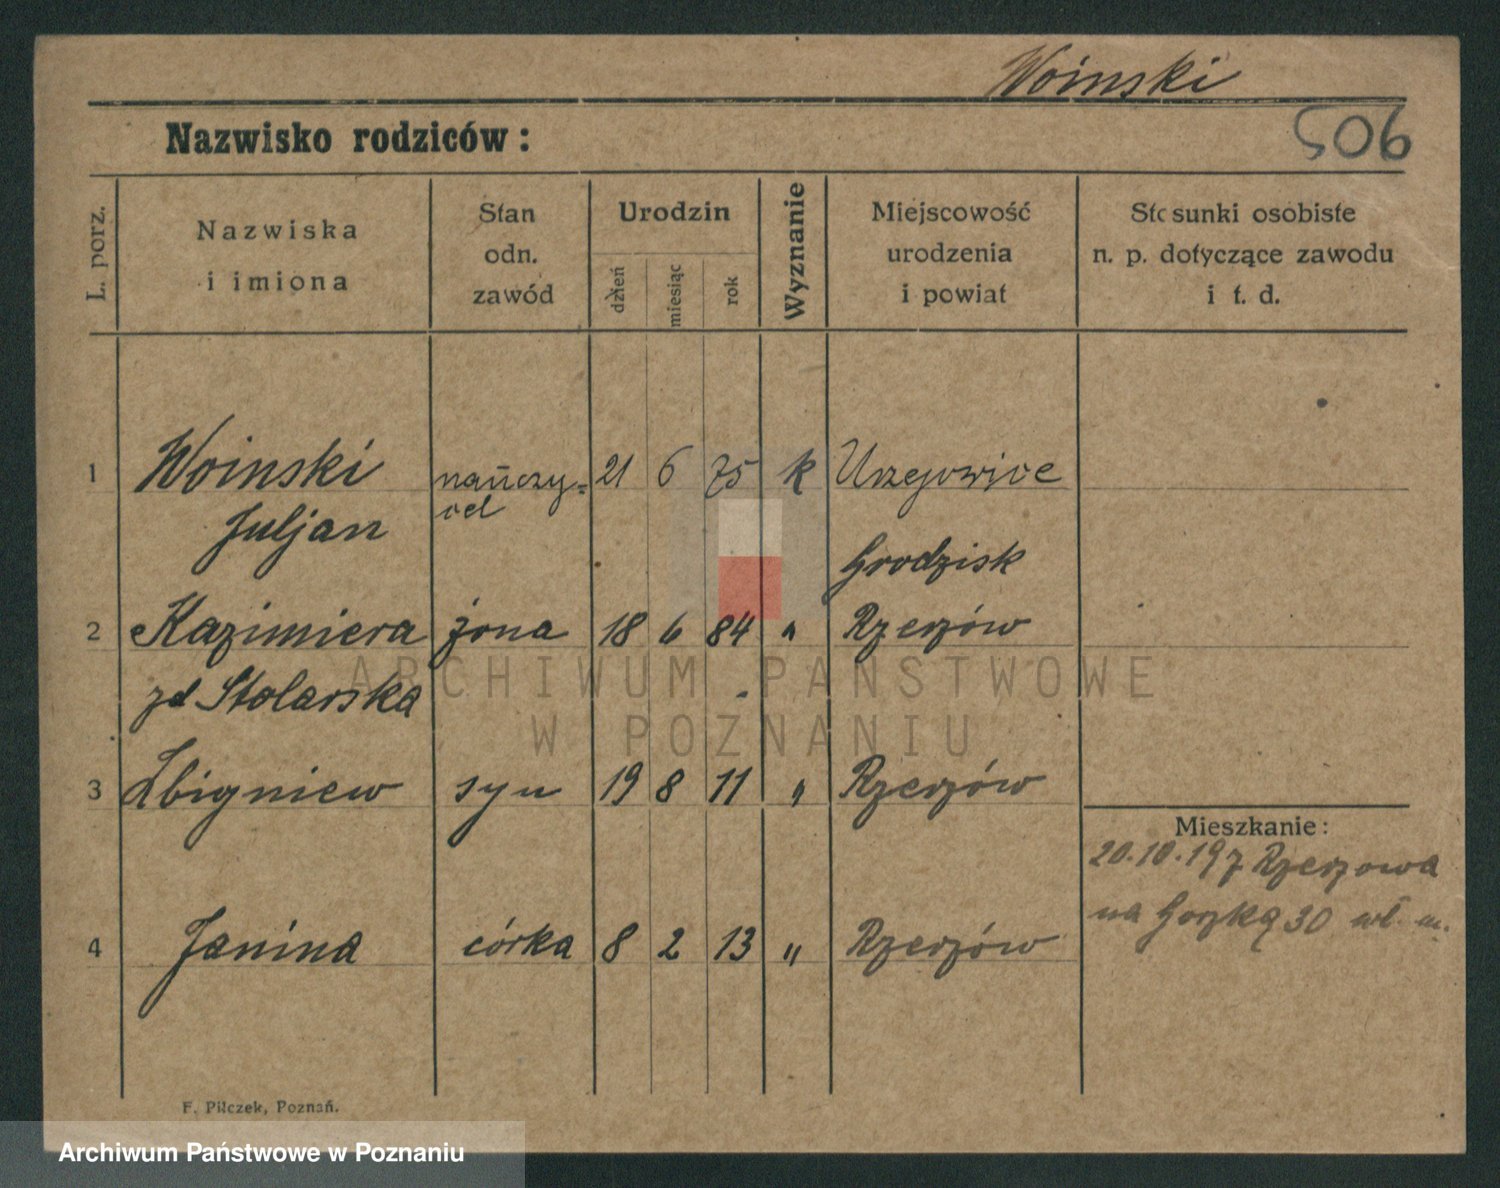 Woinski
Nazwisko rodziców:
506
L. porz.
Nazwiska
i imiona
Stan
odn.
zawód
Urodzin
dzień
miesiąc
rok
Wyznanie
Miejscowość
urodzenia
i powiat
Stosunki osobiste
n. p. dotyczące zawodu
i t. d.
1 Woinski nauczy= 21 6 75 k Urzejowice
Juljan ciel
Grodzisk
2 Kazimiera żona 18 6 84 " Rzeszów
zd Stolarska
ARCHIWUM PAŃSTWOWE
W POZNANIU
3 Zbigniew syn 19 8 11 " Rzeszów
Mieszkanie:
20.10.19 z Rzeszowa
na 30 wł. m.
4 Janina córka 8 2 13 " Rzeszów
F. Pilczek, Poznań.
Archiwum Państwowe w Poznaniu